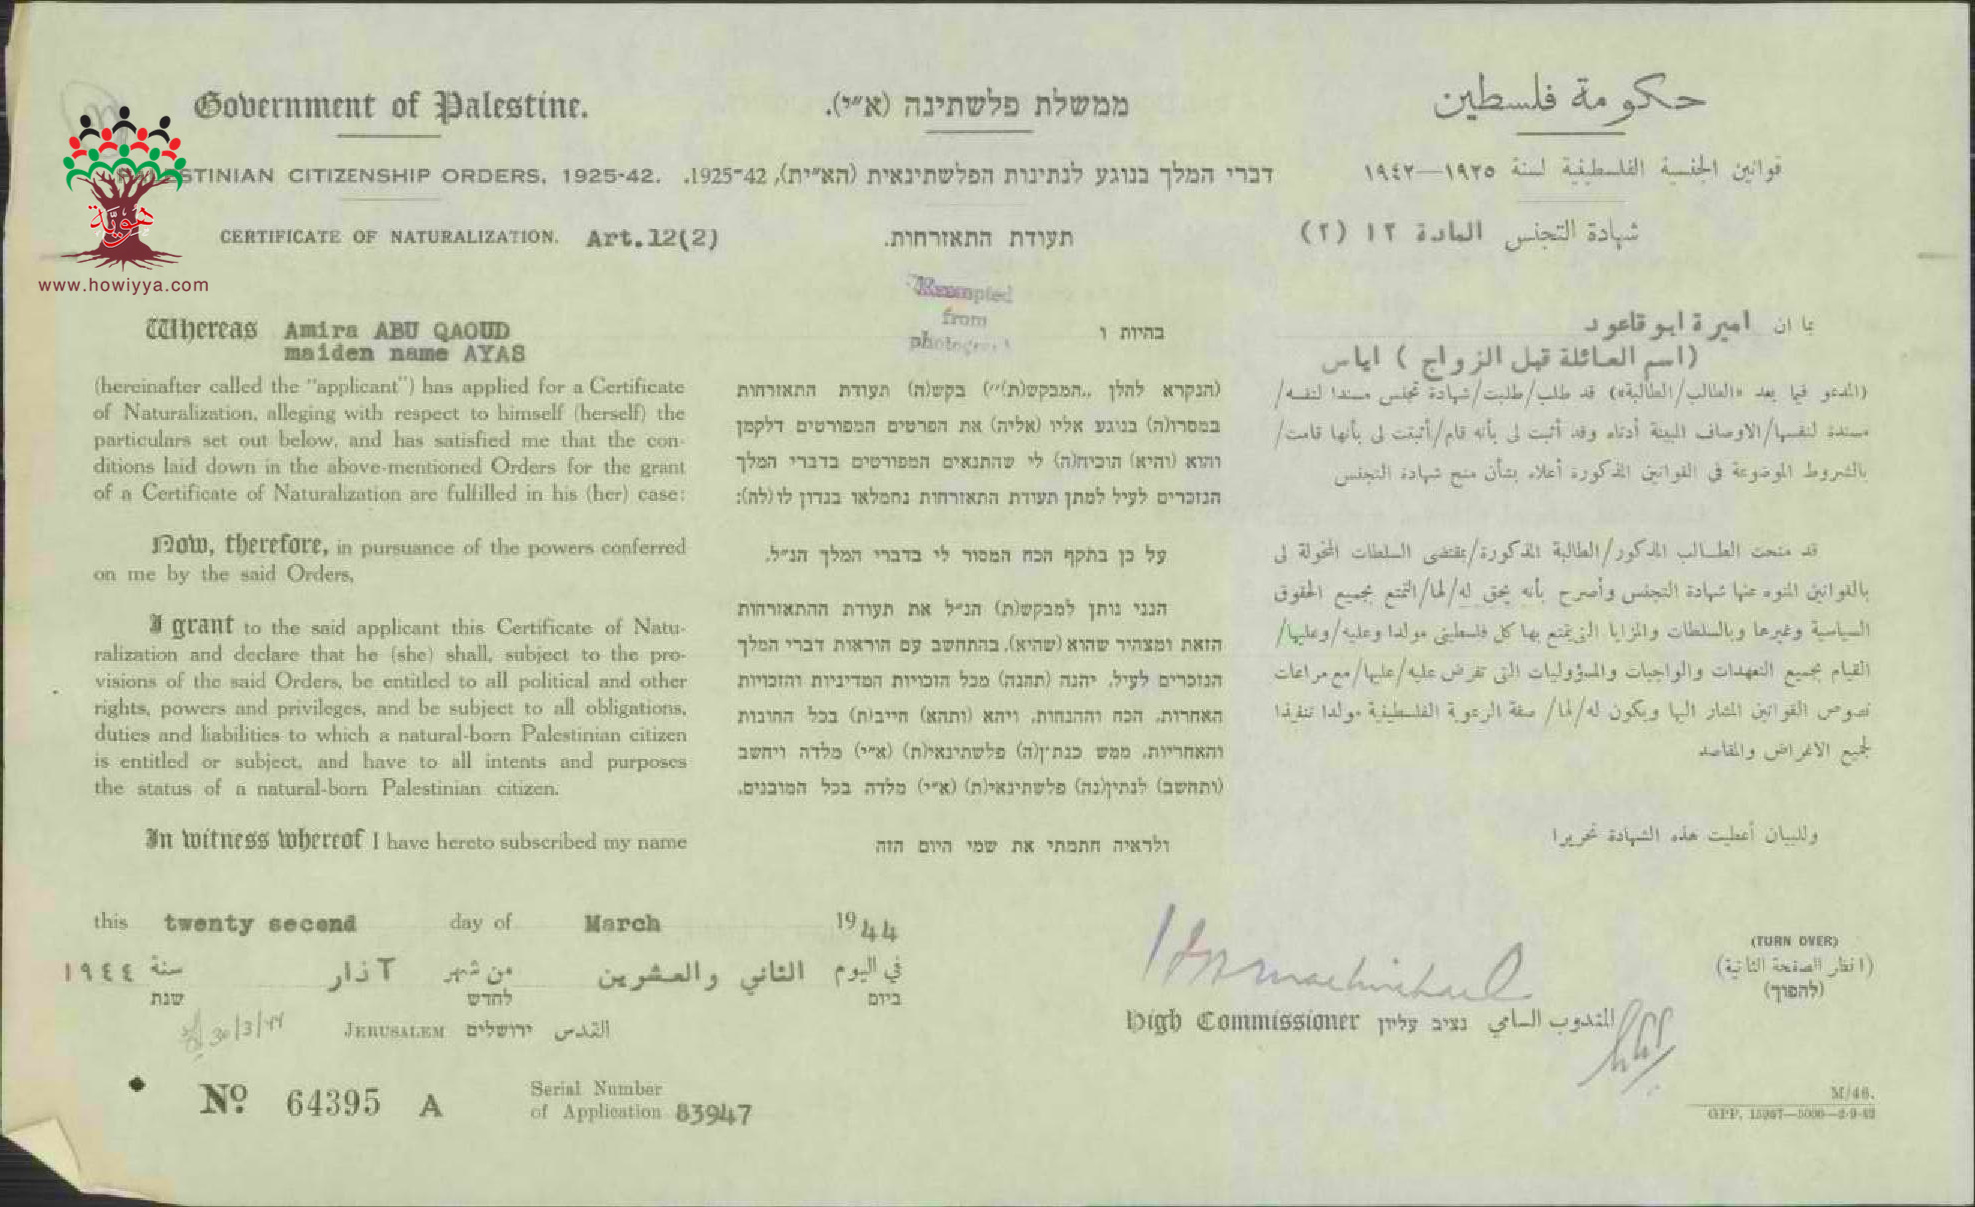 Government of Palestine.
ממשלת פלשתינה (א״י).
حكومة فلسطين
STINIAN CITIZENSHIP ORDERS, 1925-42.
דברי המלך בנוגע לנתינות הפלשתינאית (הא״ית), 1925-42.
قوانين الجنسية الفلسطينية لسنة ١٩٢٥—١٩٤٢
CERTIFICATE OF NATURALIZATION. Art.12(2)
תעודת התאזרחות.
شهادة التجنس المادة ١٢ (٢)
هُويَّة
www.howiyya.com
Exempted
from
Whereas Amira ABU QAOUD
maiden name AYAS
(hereinafter called the "applicant") has applied for a Certificate
of Naturalization, alleging with respect to himself (herself) the
particulars set out below, and has satisfied me that the con-
ditions laid down in the above-mentioned Orders for the grant
of a Certificate of Naturalization are fulfilled in his (her) case:
Now, therefore, in pursuance of the powers conferred
on me by the said Orders,
I grant to the said applicant this Certificate of Natu-
ralization and declare that he (she) shall, subject to the pro-
visions of the said Orders, be entitled to all political and other
rights, powers and privileges, and be subject to all obligations,
duties and liabilities to which a natural-born Palestinian citizen
is entitled or subject, and have to all intents and purposes
the status of a natural-born Palestinian citizen.
In witness whereof I have hereto subscribed my name
בהיות ו
(הנקרא להלן „המבקש(ת)״) בקש(ה) תעודת התאזרחות
במסרו(ה) בנוגע אליו (אליה) את הפרטים המפורטים דלקמן
והוא (והיא) הוכיח(ה) לי שהתנאים המפורטים בדברי המלך
הנזכרים לעיל למתן תעודת התאזרחות נתמלאו בנדון לו(לה):
על כן בתקף הכח המסור לי בדברי המלך הנ״ל.
הנני נותן למבקש(ת) הנ״ל את תעודת ההתאזרחות
הזאת ומצהיר שהוא (שהיא), בהתחשב עם הוראות דברי המלך
הנזכרים לעיל, יהנה (תהנה) מכל הזכויות המדיניות והזכויות
האחרות, הכח וההנחות, ויהא (ותהא) חייב(ת) בכל החובות
והאחריות, ממש כנתין(ה) פלשתינאי(ת) (א״י) מלדה ויחשב
(ותחשב) לנתין(נה) פלשתינאי(ת) (א״י) מלדה בכל המובנים.
ולראיה חתמתי את שמי היום הזה
بما ان اميرة ابو قاعود
(اسم العائلة قبل الزواج ) اياس
(المدعو فيما يعد «الطالب/الطالبة») قد طلب/طلبت/شهادة تجنس مسندا لنفسه/
مسندة لنفسها/الاوصاف المبينة أدناه وقد أثبت لي بأنه قام/أثبتت لي بأنها قامت/
بالشروط الموضوعة في القوانين المذكورة أعلاه بشأن منح شهادة التجنس
قد منحت الطالب المذكور/الطالبة المذكورة/بمقتضى السلطات المخولة لي
بالقوانين المنوه عنها شهادة التجنس وأصرح بأنه يحق له/لها/التمتع بجميع الحقوق
السياسية وغيرها وبالسلطات والمزايا التي يتمتع بها كل فلسطيني مولدا وعليه/وعليها/
القيام بجميع التعهدات والواجبات والمسؤوليات التي تفرض عليه/عليها/مع مراعات
نصوص القوانين المشار اليها ويكون له/لها/ صفة الرعوية الفلسطينية مولدا تنفيذا
لجميع الاغراض والمقاصد
وللبيان أعطيت هذه الشهادة تحريرا
this twenty second day of March 1944
في اليوم الثاني والعشرين من شهر آذار سنة ١٩٤٤
ביום לחדש שנת
30/3/44
JERUSALEM ירושלים القدس
High Commissioner נציב עליון المندوب السامي
(TURN OVER)
(انظر الصفحة الثانية)
(להפוך)
No. 64395 A
Serial Number
of Application 83947
M/46.
GPP. 15967—5000—2-9-42